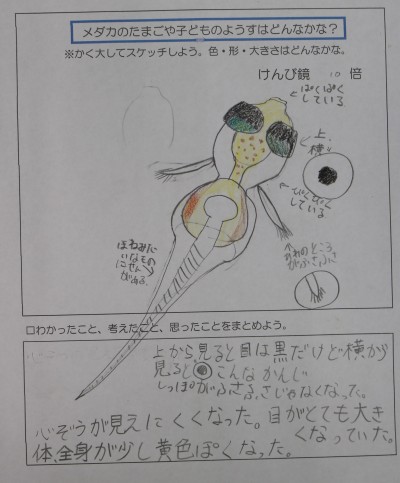 メダカのたまごや子どものようすはどんなかな？
※かく大してスケッチしよう。色・形・大きさはどんなかな。
けんび鏡 10 倍
ぱくぱく
している
上、
横
ぴくぴく
している
ほねみた
いなもの
にせん
がある。
さわるところ
がふさふさ
□わかったこと、考えたこと、思ったことをまとめよう。
上から見ると目は黒だけど横から
見ると こんなかんじ
しっぽがふさふさじゃなくなった。
心ぞうが見えにくくなった。目がとても大き
くなっていた。
体全身が少し黄色ぽくなった。